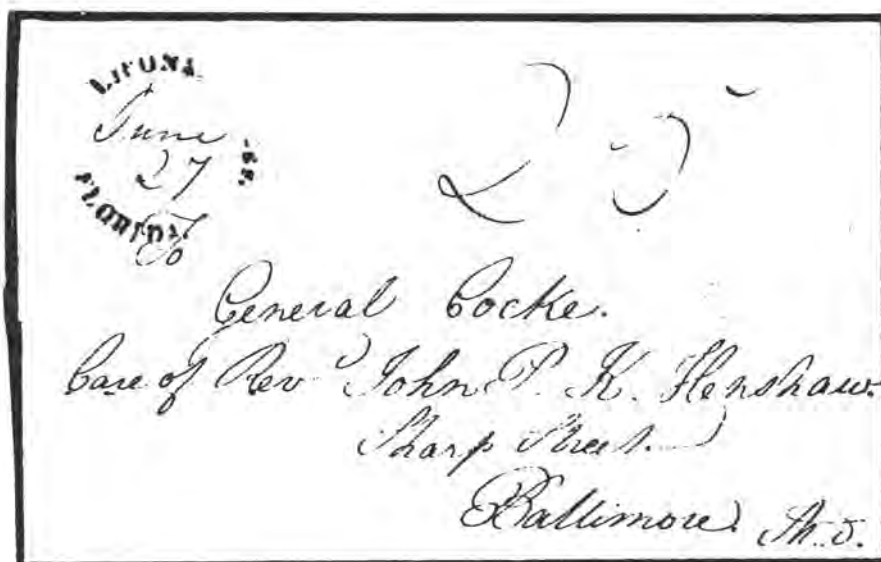 LIPONA
June
27
FLORIDA
25
To
General Cocke.
Care of Rev'd John P. K. Henshaw.
Sharp Street.
Baltimore. Md.